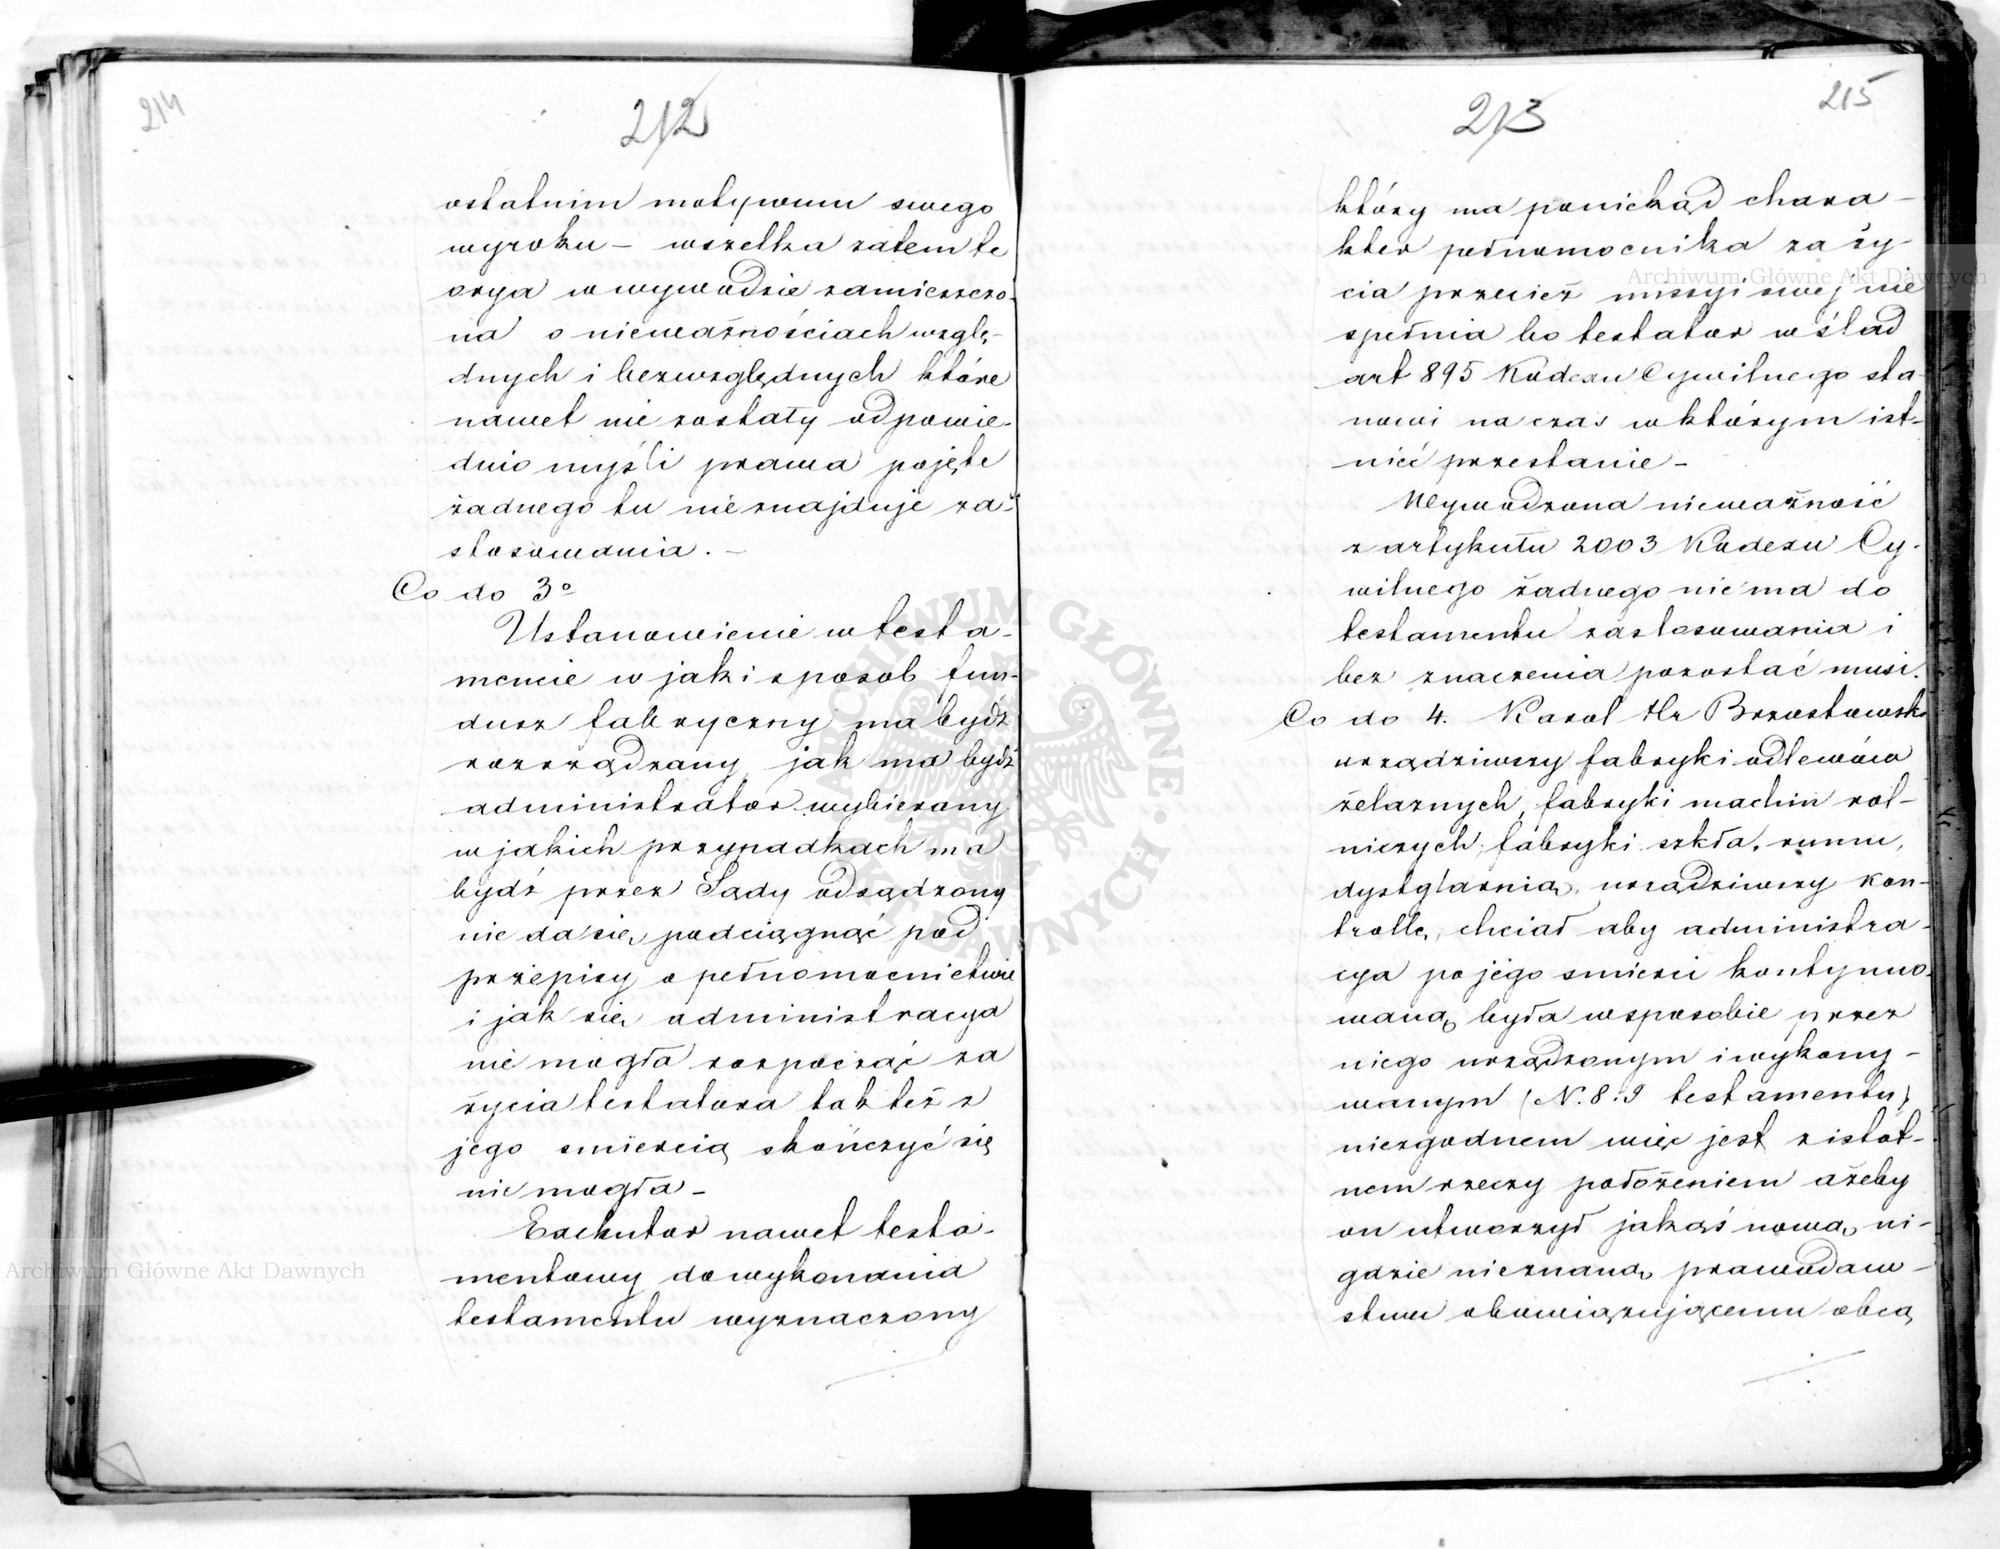 214
212
ostatnim motywem swego
wyroku – wszelka zatem te
orya w wywodzie zamieszczo-
na o nieważnościach wzglę-
dnych i bezwzględnych które
nawet nie zostały odpowie-
dnio myśli prawa pojęte
żadnego tu nie znajduje za-
stosowania. –
Co do 3°
Ustanowienie w testa-
mencie w jaki sposob fun-
dusz fabryczny ma bydź
rozrządzany, jak ma bydź
administrator wybierany
w jakich przypadkach ma
bydź przez Sądy odsądzony
nie da się podciągnąć pod
przepisy o pełnomocnictwie
i jak się administracya
nie mogła rozpocząć za
życia testatora tak też z
jego śmiercią skończyć się
nie mogła –
Exekutor nawet testa-
mentowy do wykonania
testamentu wyznaczony
215
213
który ma poniekąd chara-
kter pełnomocnika za ży-
cia przecież missyi swej nie
spełnia bo testator w ślad
art 895 Kodexu Cywilnego sta
nowi na czas w którym ist-
nieć przestanie –
Wywodzona nieważność
z artykułu 2003 Kodexu Cy-
wilnego żadnego nie ma do
testamentu zastosowania i
bez znaczenia pozostać musi.
Co do 4. Karol Hr Brzostowski
urządziwszy fabryki odlewów
żelaznych, fabryki machin rol-
niczych, fabryki szkła, rumu,
dystylarnią, urządziwszy kon-
trollę, chciał aby administra-
cya po jego śmierci kontynuo-
waną była w sposobie przez
niego urządzonym i wykony-
wanym (N. 8 i 9 testamentu)
niezgodnem więc jest z istot-
nem rzeczy położeniem ażeby
on utworzył jakąś nową, ni-
gdzie nieznaną, prawodaw-
stwu obowiązującemu obcą
Archiwum Główne Akt Dawnych
Archiwum Główne Akt Dawnych
ARCHIWUM GŁÓWNE AKT DAWNYCH